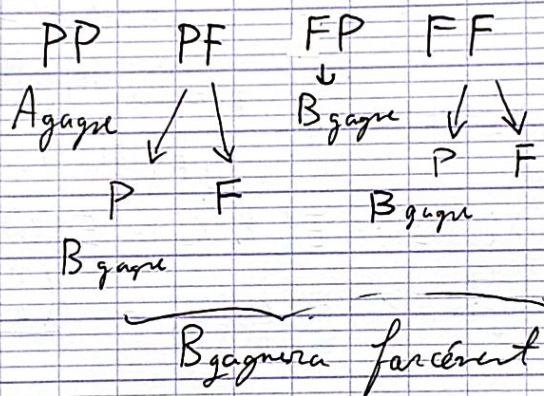 PP PF FP FF
A gagne
B gagne
P F
P F
B gagne
B gagne
B gagnera forcément